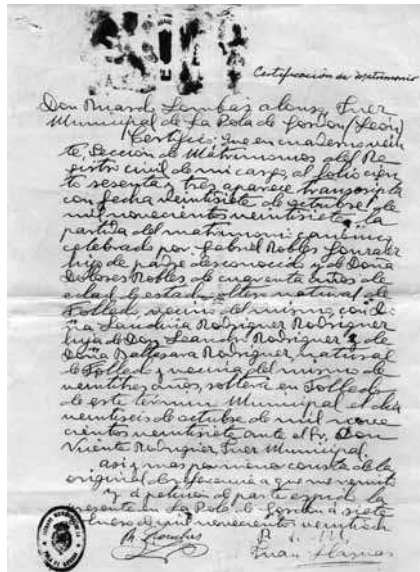 Certificación de Matrimonio
Don Ricardo Lombas Alonso, Juez
Municipal de La Pola de Gordon (León)
Certifico: Que en cuaderno vein
te, Sección de Matrimonios del Re
gistro civil de mi cargo, al folio cien
to sesenta y tres aparece transcripta
con fecha veintisiete de octubre de
mil novecientos veintisiete, la
partida del matrimonio canónico
celebrado por Gabriel Robles Gonzalez
hijo de padre desconocido y de Doña
Dolores Robles de cuarenta años de
edad de estado soltero natural de
Folledo, vecino del mismo, con Do
ña Laudina Rodriguez Rodriguez
hija de Don Leandro Rodriguez y de
Doña Baltasara Rodriguez, natural
de Folledo y vecina del mismo de
veintitres años, soltera en Folledo
de este término Municipal el dia
veintiseis de octubre de mil nove
cientos veintisiete ante el Sr. Don
Vicente Rodriguez Juez Municipal.
asi y mas por menor consta de la
original de referencia a que me remito
y a petición de parte expido la
presente en La Pola de Gordon a siete
de mil novecientos veintiocho
R. Lombas
Juan Llamas